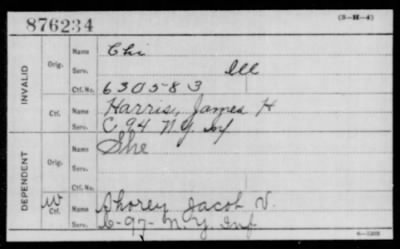 876234
(3-H-4)
INVALID
Orig.
Name Chi
Serv. Ill
Ctf. No. 630583
Ctf.
Name Harris, James H
Serv. C 94 N.Y. Inf
DEPENDENT
Orig.
Name She
Serv.
Ctf. No.
W
Ctf.
Name Shorey Jacob V.
Serv. 97- N.Y. Inf